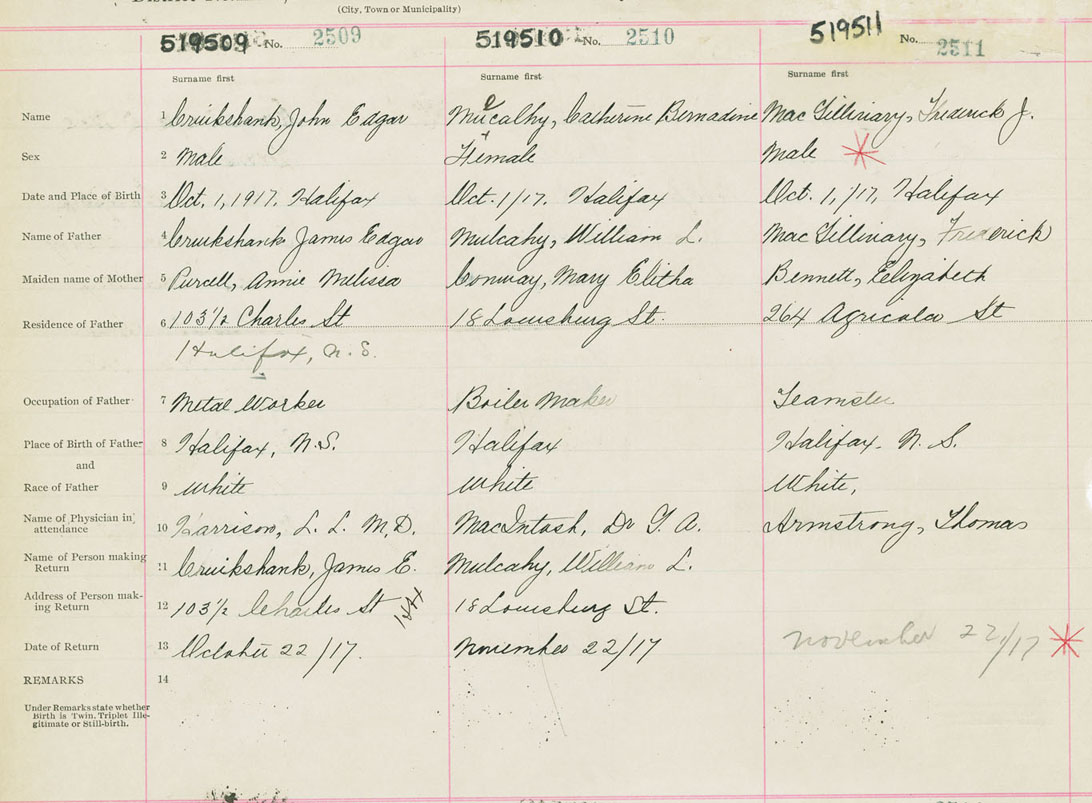 (City, Town or Municipality)
519509 No. 2509 519510 No. 2510 519511 No. 2511
Surname first Surname first Surname first
Name 1 Cruikshank, John Edgar Mucalhy, Catherine Bernadine Mac Gilliviary, Frederick J.
Sex 2 Male Female Male
Date and Place of Birth 3 Oct. 1, 1917. Halifax Oct. 1/17. Halifax Oct. 1, /17, Halifax
Name of Father 4 Cruikshank James Edgar Mulcahy, William L. Mac Gilliviary, Frederick
Maiden name of Mother 5 Purcell, Annie Melissa Conway, Mary Elitha Bennett, Eelizabeth
Residence of Father 6 103½ Charles St 18 Louisburg St. 264 Agricola St
Halifax, N.S.
Occupation of Father 7 Metal Worker Boiler Maker Teamster
Place of Birth of Father 8 Halifax, N.S. Halifax Halifax. N. S.
and
Race of Father 9 White White White,
Name of Physician in attendance 10 Harrison, L. L. M.D. MacIntosh, Dr G. A. Armstrong, Thomas
Name of Person making Return 11 Cruikshank, James E. Mulcahy, William L.
Address of Person making Return 12 103½ Charles St Hfx 18 Louisburg St.
Date of Return 13 October 22/17. November 22/17 November 22/17
REMARKS 14
Under Remarks state whether
Birth is Twin, Triplet Ille-
gitimate or Still-birth.